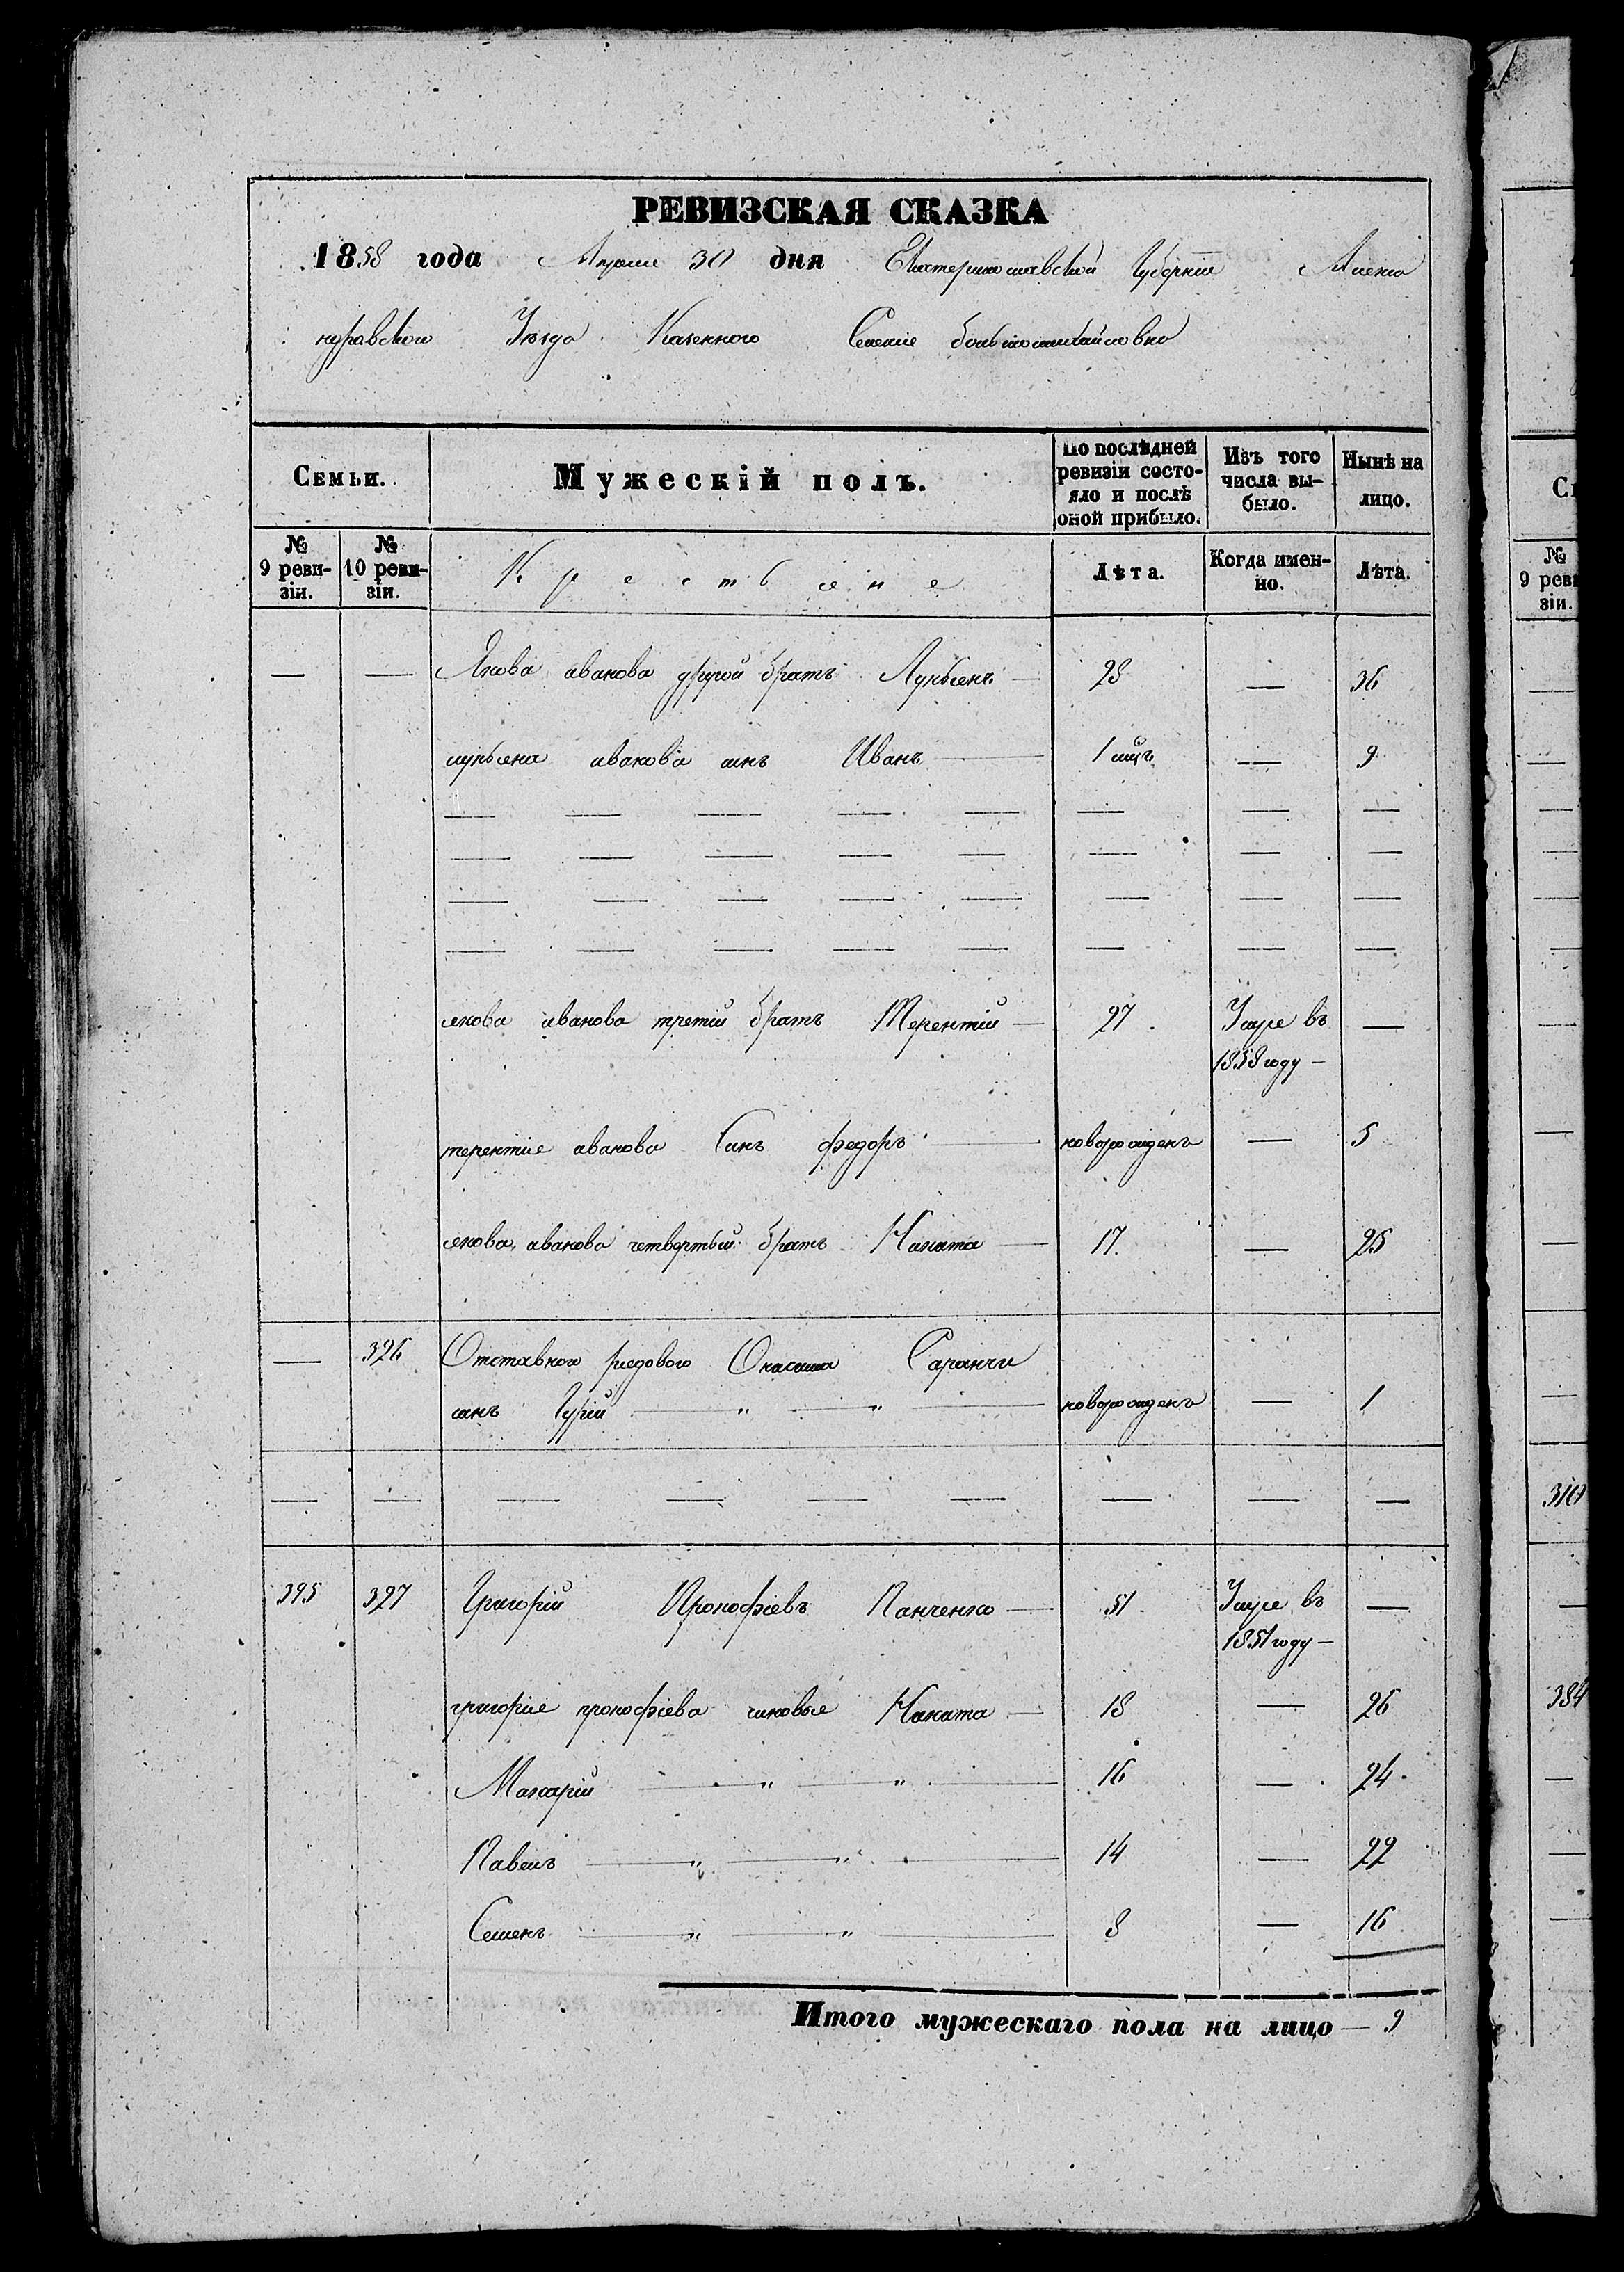 РЕВИЗСКАЯ СКАЗКА
1858 года Апреля 30 дня Екатеринославской Губерніи Алекса
ндровского Уезда Казенного Селенія Большомихайловки
Семьи.
Мужескій полъ.
По послѣдней ревизіи состояло и послѣ оной прибыло.
Изъ того числа выбыло.
Нынѣ на лицо.
№ 9 ревизіи.
№ 10 ревизіи.
Крестьяне
Лѣта.
Когда именно.
Лѣта.
— — Якова иванова другой братъ Лукьянъ — 28 — 36
лукьяна иванова сынъ Иванъ — 1 мцъ — 9
якова иванова третій братъ Терентій — 27 Умре въ —
1858 году —
терентія иванова Сынъ федоръ — новорожденъ — 5
якова иванова четвертый братъ Никита — 17 — 25
— 326 Отставного рядового Саранчи
сынъ Гурій — " — " — новорожденъ — 1
395 327 Григорій Прокофіевъ Панченко — 51 Умре въ —
1851 году —
григорія прокофіева сыновья Никита — 18 — 26
Макарій — " — " — 16 — 24
Павелъ — " — " — 14 — 22
Семенъ — " — " — 8 — 16
Итого мужескаго пола на лицо — 9
№
9 реви
зіи.
310
384